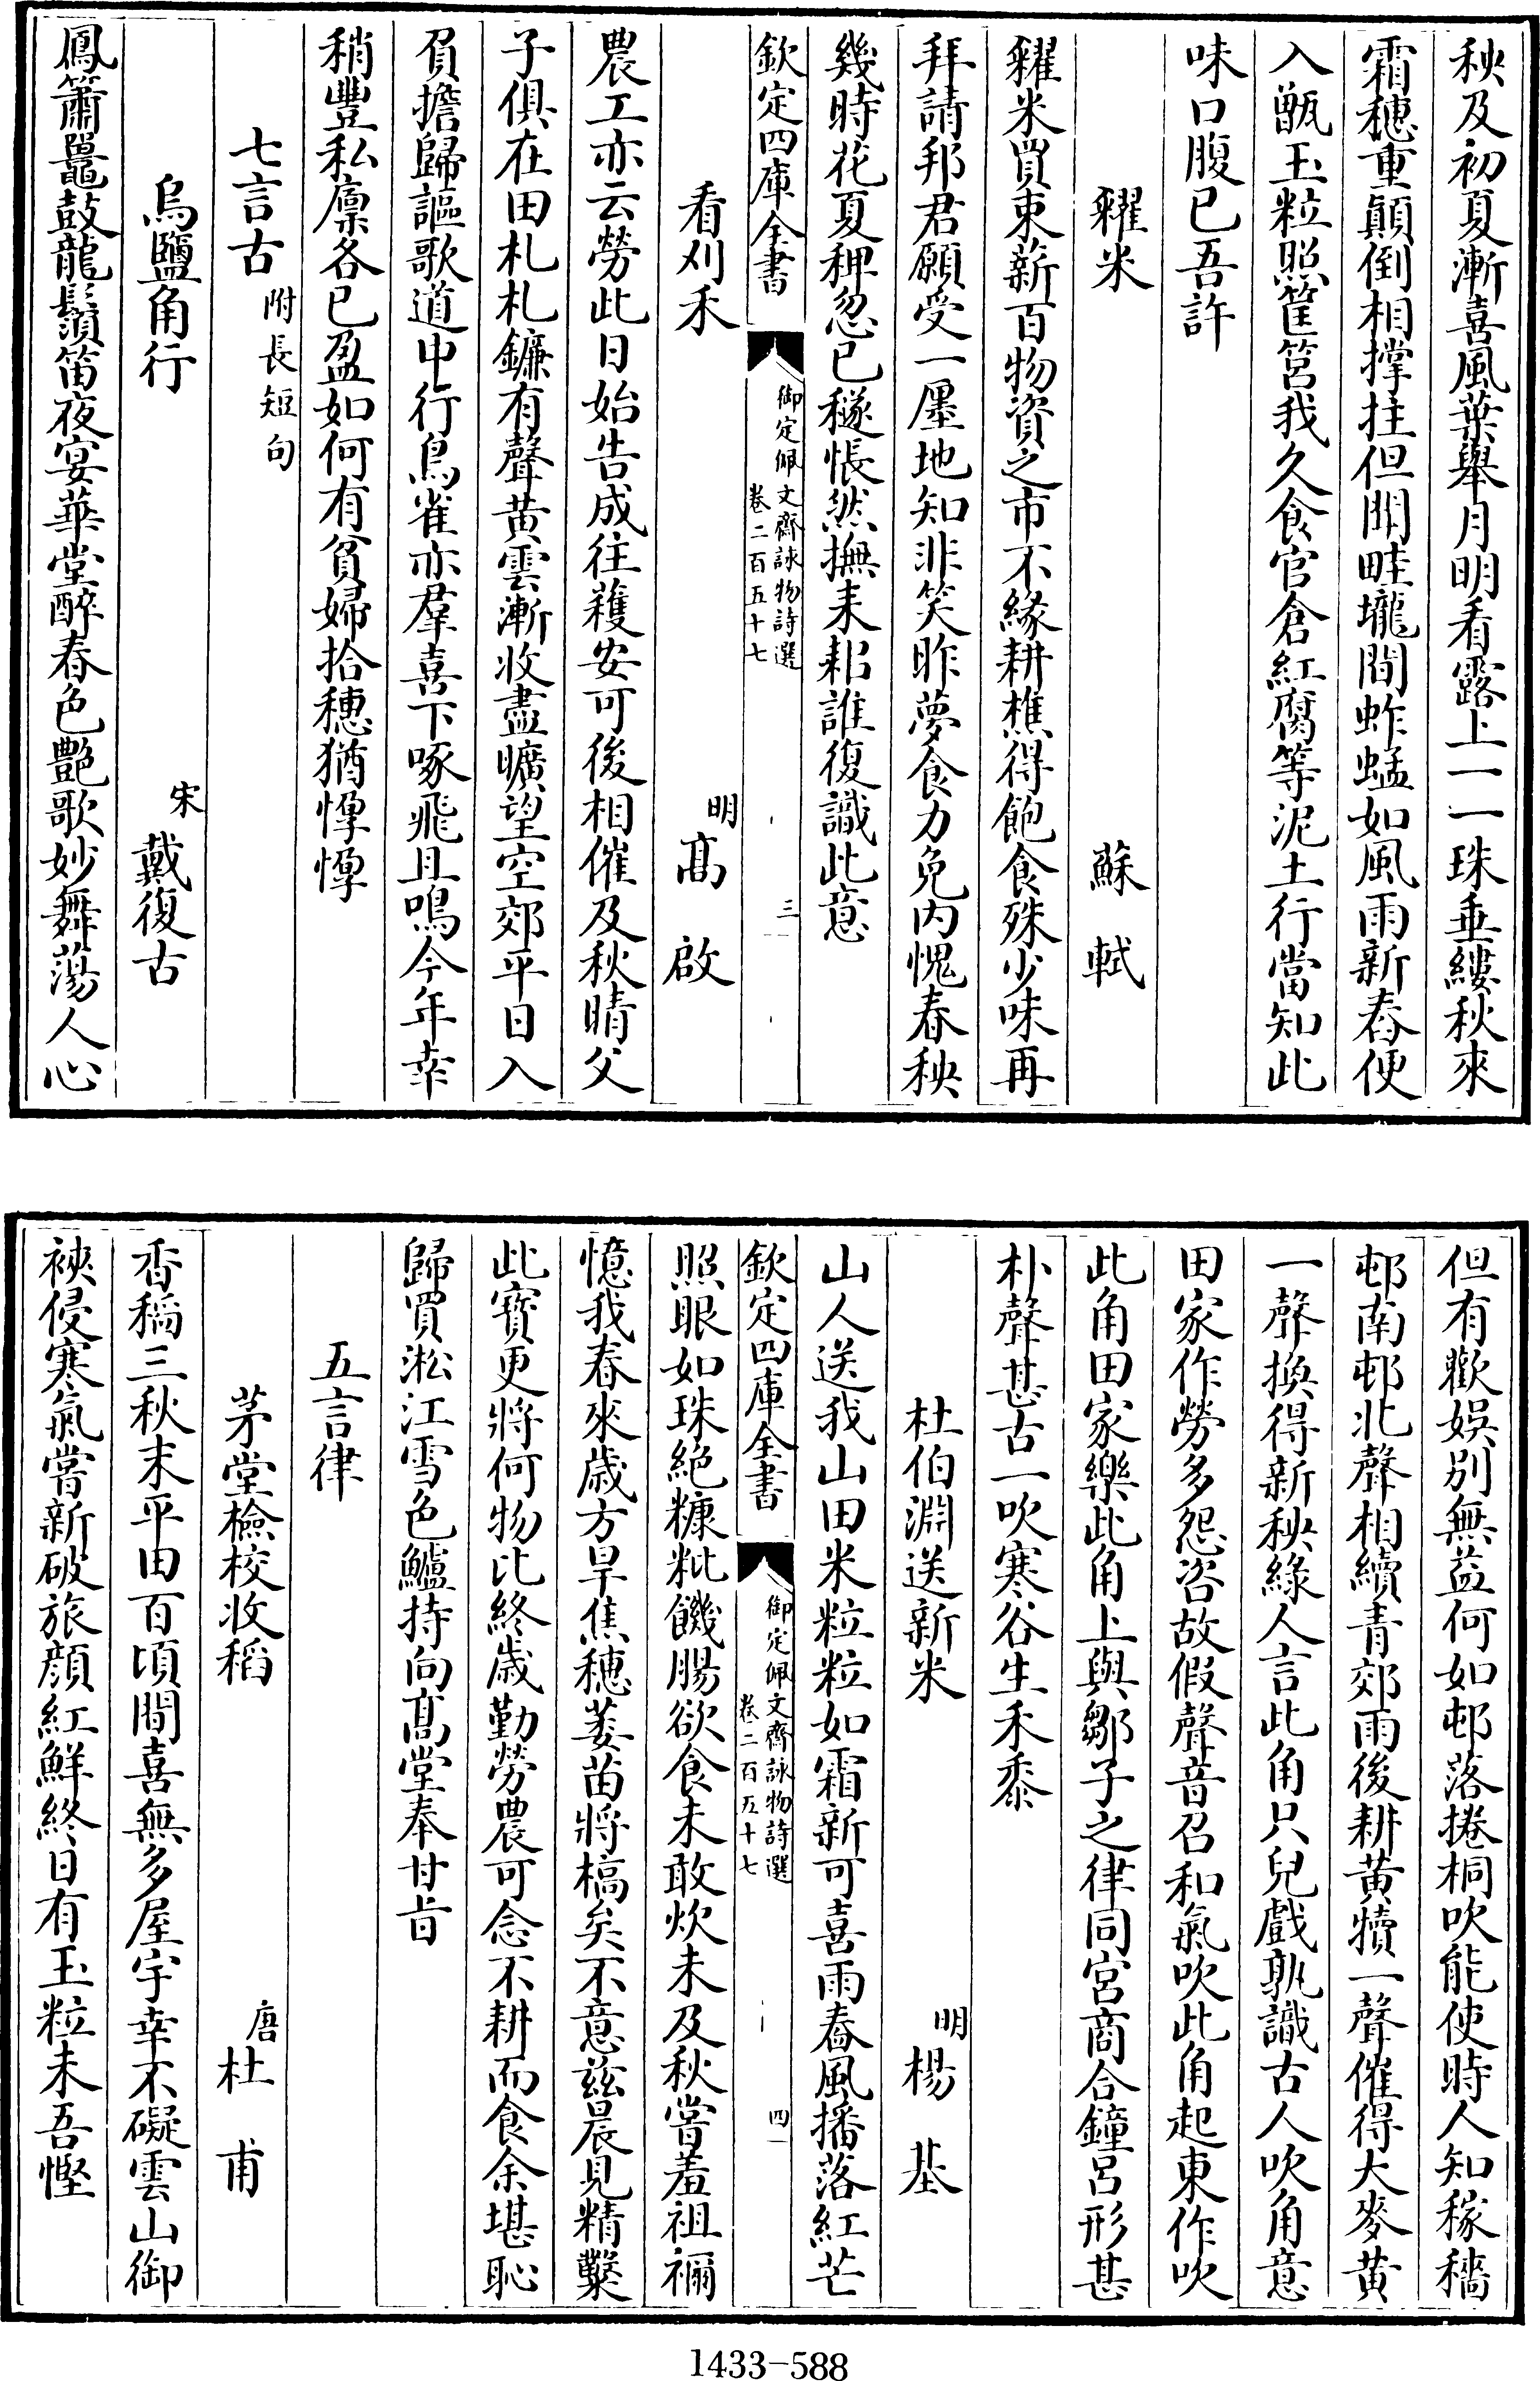 秧及初夏漸喜風葉舉月明看露上一一珠垂縷秋來
霜穗重顛倒相撑拄但聞畦壠間蚱蜢如風雨新舂便
入甑玉粒照筐筥我久食官倉紅腐等泥土行當知此
味口腹已吾許
糴米
蘇軾
糴米買束薪百物資之市不緣耕樵得飽食殊少味再
拜請邦君願受一廛地知非笑昨夢食力免內愧春秧
幾時花夏稗忽已穟悵然撫耒耜誰復識此意
欽定四庫全書
御定佩文齋詠物詩選
卷二百五十七
三
看刈禾
明
高啟
農工亦云勞此日始告成往穫安可後相催及秋晴父
子俱在田札札鐮有聲黃雲漸收盡曠望空郊平日入
負擔歸謳歌道中行鳥雀亦羣喜下啄飛且鳴今年幸
稍豐私廪各已盈如何有貧婦拾穗猶惸惸
七言古
附長短句
烏鹽角行
宋
戴復古
鳳簫鼉鼓龍鬚笛夜宴華堂醉春色艷歌妙舞蕩人心
但有歡娛別無益何如邨落捲桐吹能使時人知稼穡
邨南邨北聲相續青郊雨後耕黃犢一聲催得大麥黃
一聲換得新秧綠人言此角只兒戲孰識古人吹角意
田家作勞多怨咨故假聲音召和氣吹此角起東作吹
此角田家樂此角上與鄒子之律同宮商合鐘呂形甚
朴聲甚古一吹寒谷生禾黍
杜伯淵送新米
明
楊基
山人送我山田米粒粒如霜新可喜雨舂風播落紅芒
欽定四庫全書
御定佩文齋詠物詩選
卷二百五十七
四
照眼如珠絕糠粃饑腸欲食未敢炊未及秋嘗羞祖禰
憶我春來歲方旱焦穗萎苗將槁矣不意兹晨見精鑿
此寶更將何物比終歲勤勞農可念不耕而食余堪恥
歸買淞江雪色鱸持向高堂奉甘旨
五言律
茅堂檢校收稻
唐
杜甫
香稻三秋末平田百頃間喜無多屋宇幸不礙雲山御
裌侵寒氣嘗新破旅顏紅鮮終日有玉粒未吾慳
1433-588